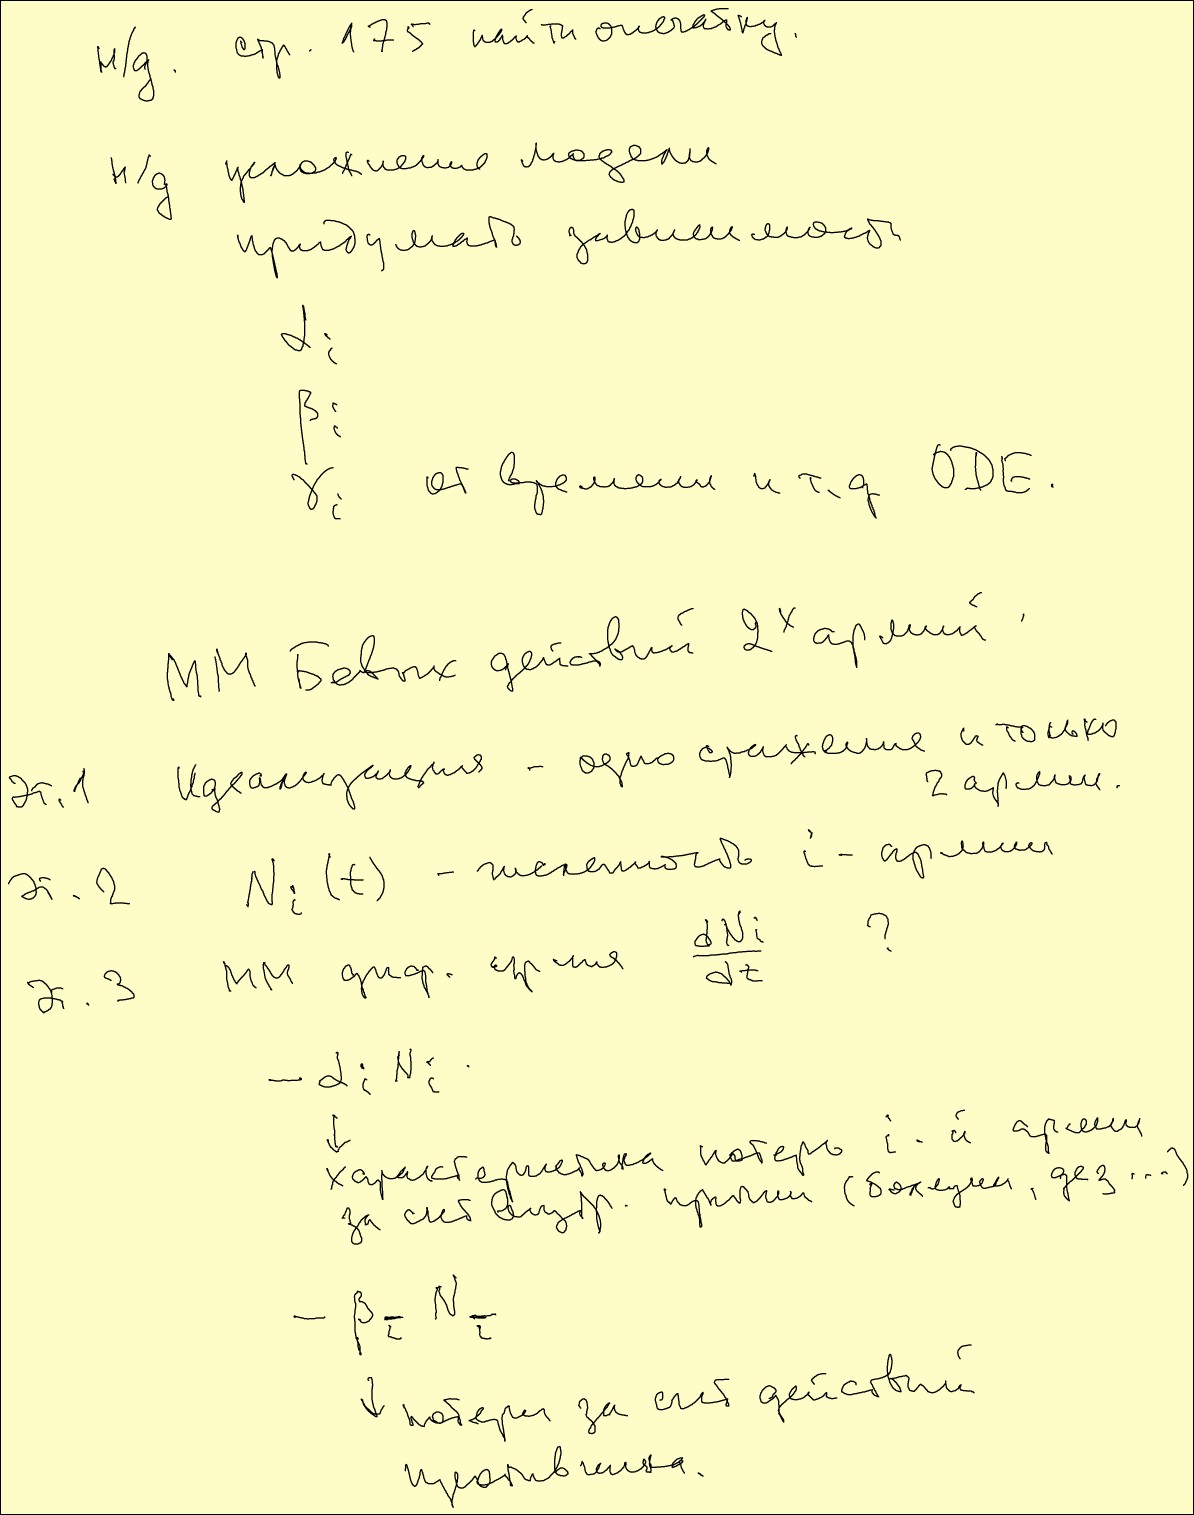 н/д. стр. 175 найти опечатку.
н/д усложнение модели
придумать зависимость
αi
βi
γi от времени и т.д ODE.
ММ Боевых действий 2х армий
Эт.1 Идеализация - одно сражение и только
2 армии.
Эт.2 Ni(t) - численность i-армии
Эт.3 ММ диф. ур-ния dNi/dt ?
- αi Ni.
↓
характеристика потерь i-й армии
за счет внутр. причин (болезни, дез...)
- βī Nī
↓ потери за счет действий
противника.